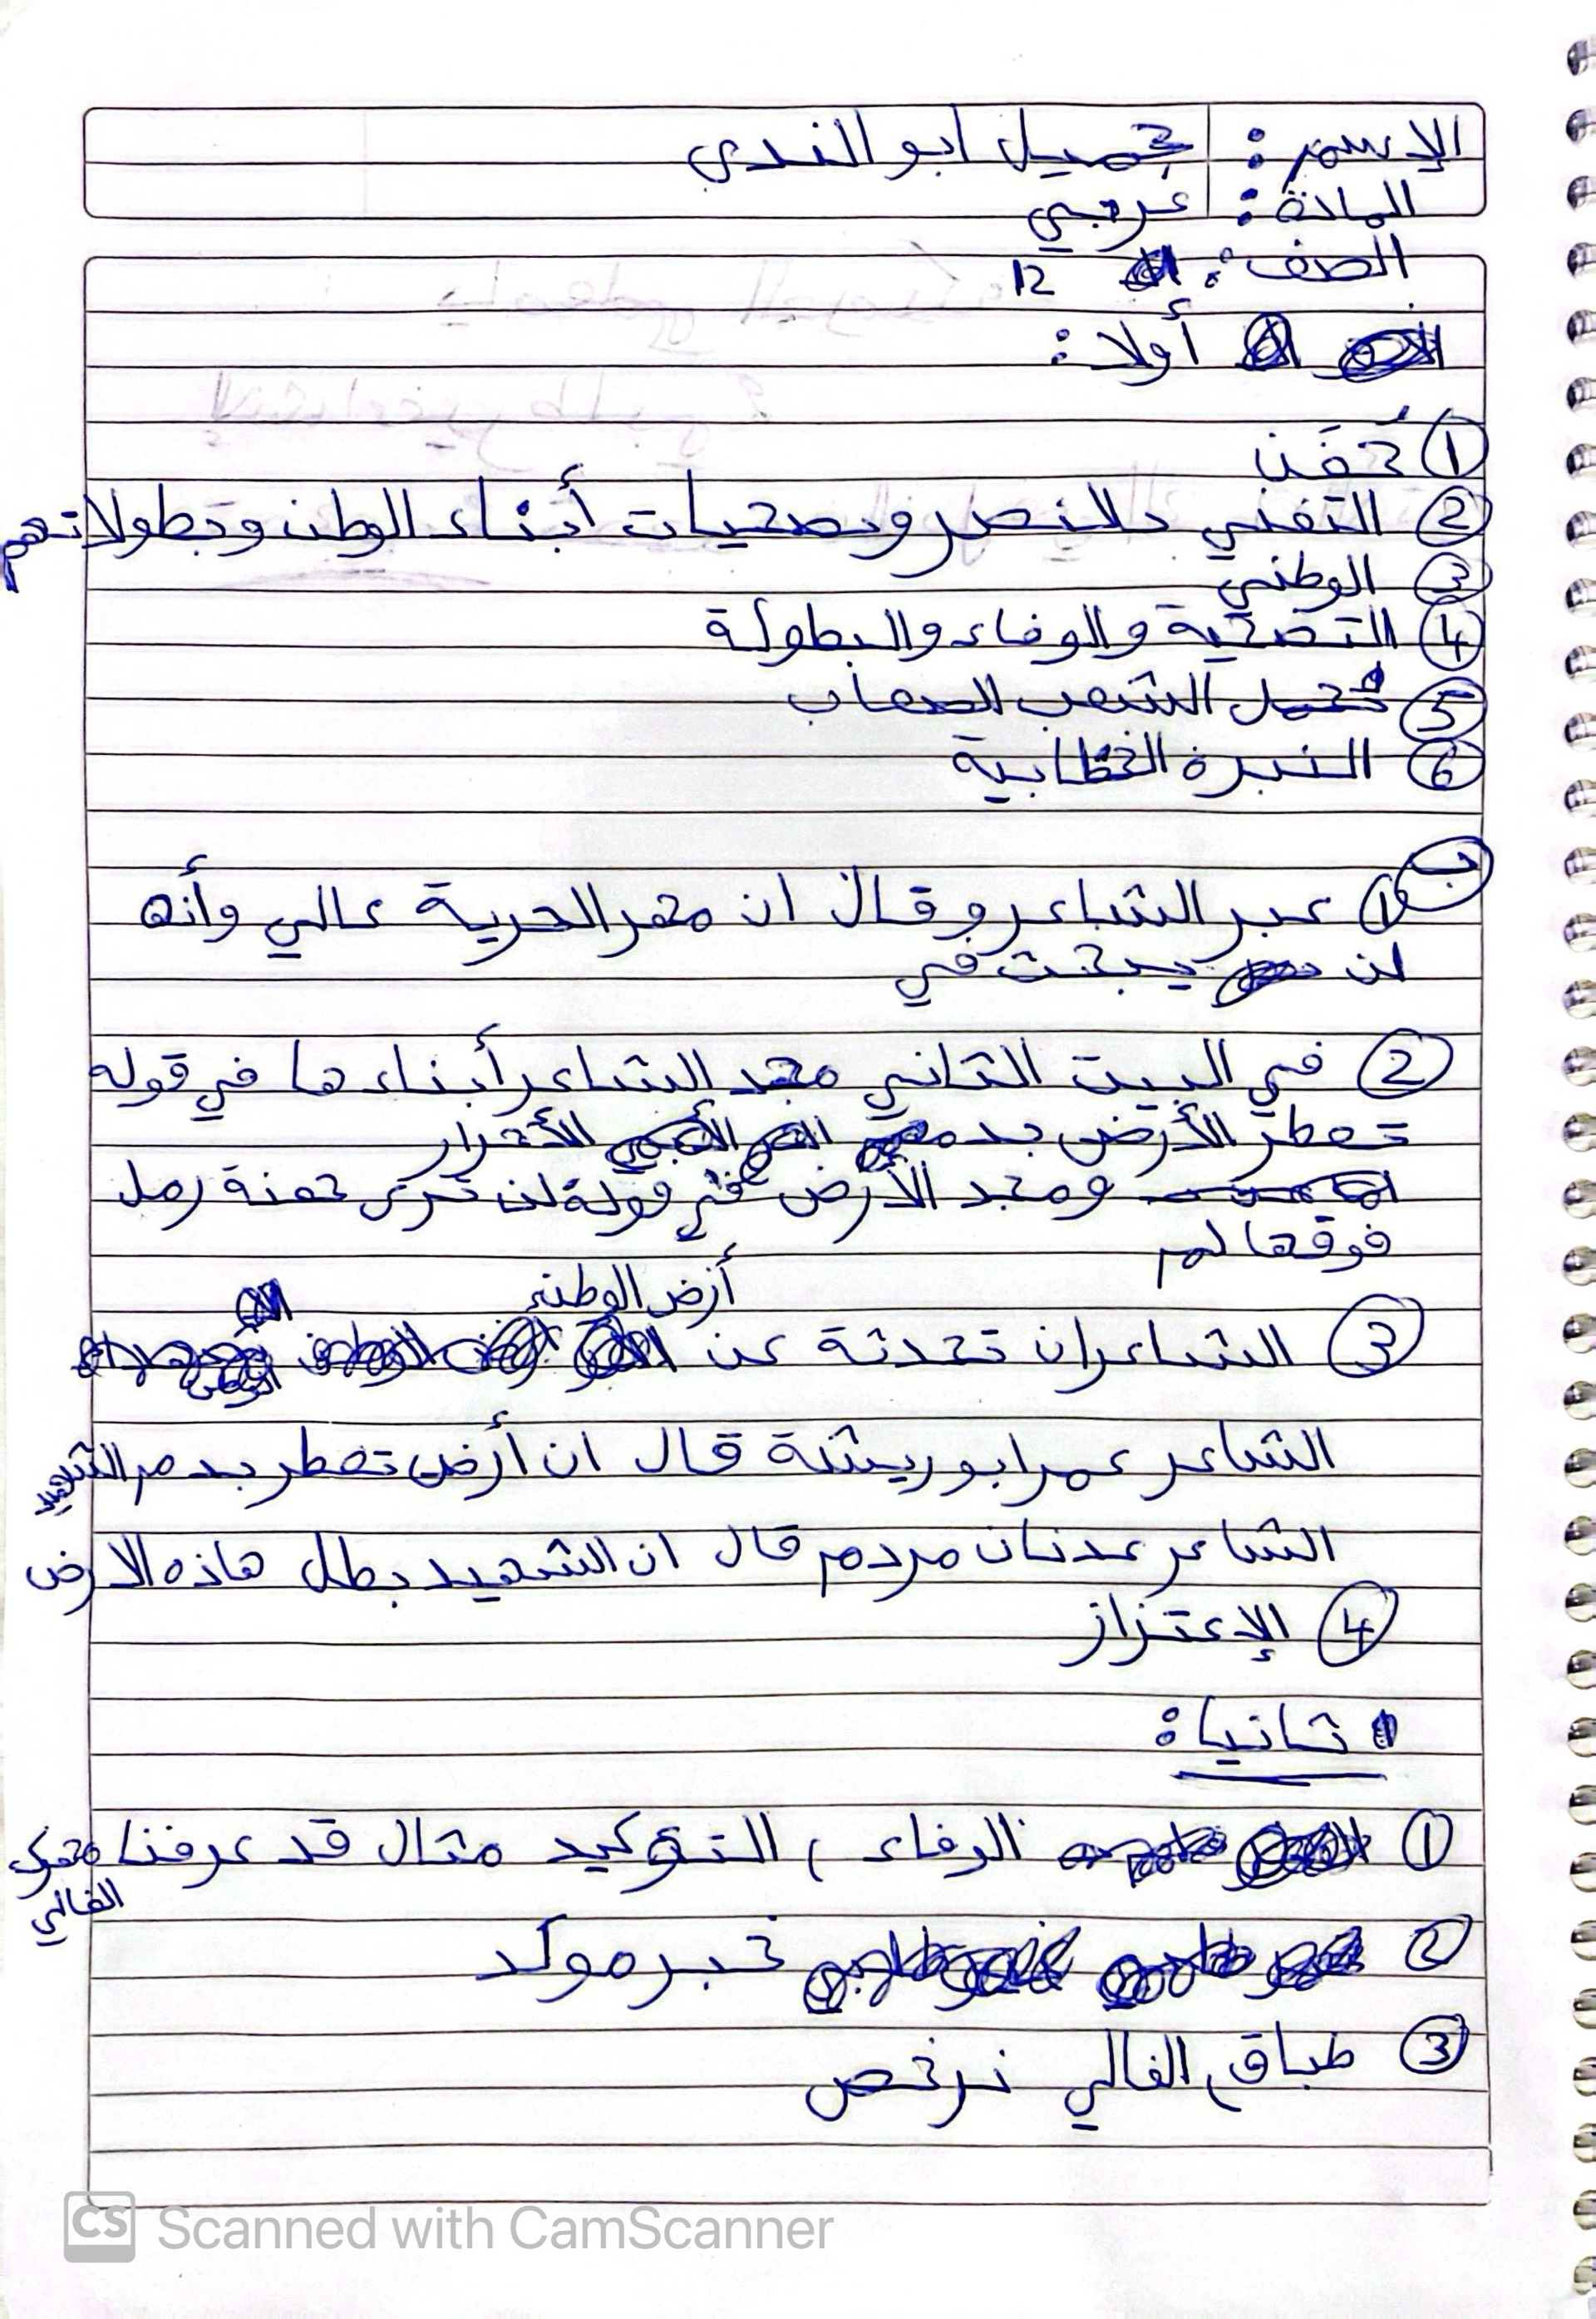 الإسم : جميل ابو الندى
المادة : عربي
الصف : 12
أولا :
1 جَفَن
2 التغني بالنصر وبصحيات أبناء الوطن وبطولاتهم
3 الوطني
4 التضحية والوفاء والبطولة
5 تحمل الشعب الصعاب
6 النبرة الخطابية
ب
1 عبر الشاعر وقال ان مهر الحرية عالي وأنه
لن في
2 في البيت الثاني مجد الشاعر أبناء ها في قوله
تعطر الأرض بدم الأحرار
ومجد الأرض في قولة لن ترى حفنة رمل
فوقها لم
أرض الوطن
3 الشاعران تحدثة عن
الشاعر عمر ابو ريشة قال ان أرض تعطر بدم الشهيد
الشاعر عدنان مردم قال ان الشهيد بطل هاذه الارض
4 الإعتزاز
ثانيا :
1 الوفاء ، التوكيد مثال قد عرفنا مهرك
الغالي
2 خبر موكد
3 طباق ، الغالي نرخص
CS Scanned with CamScanner